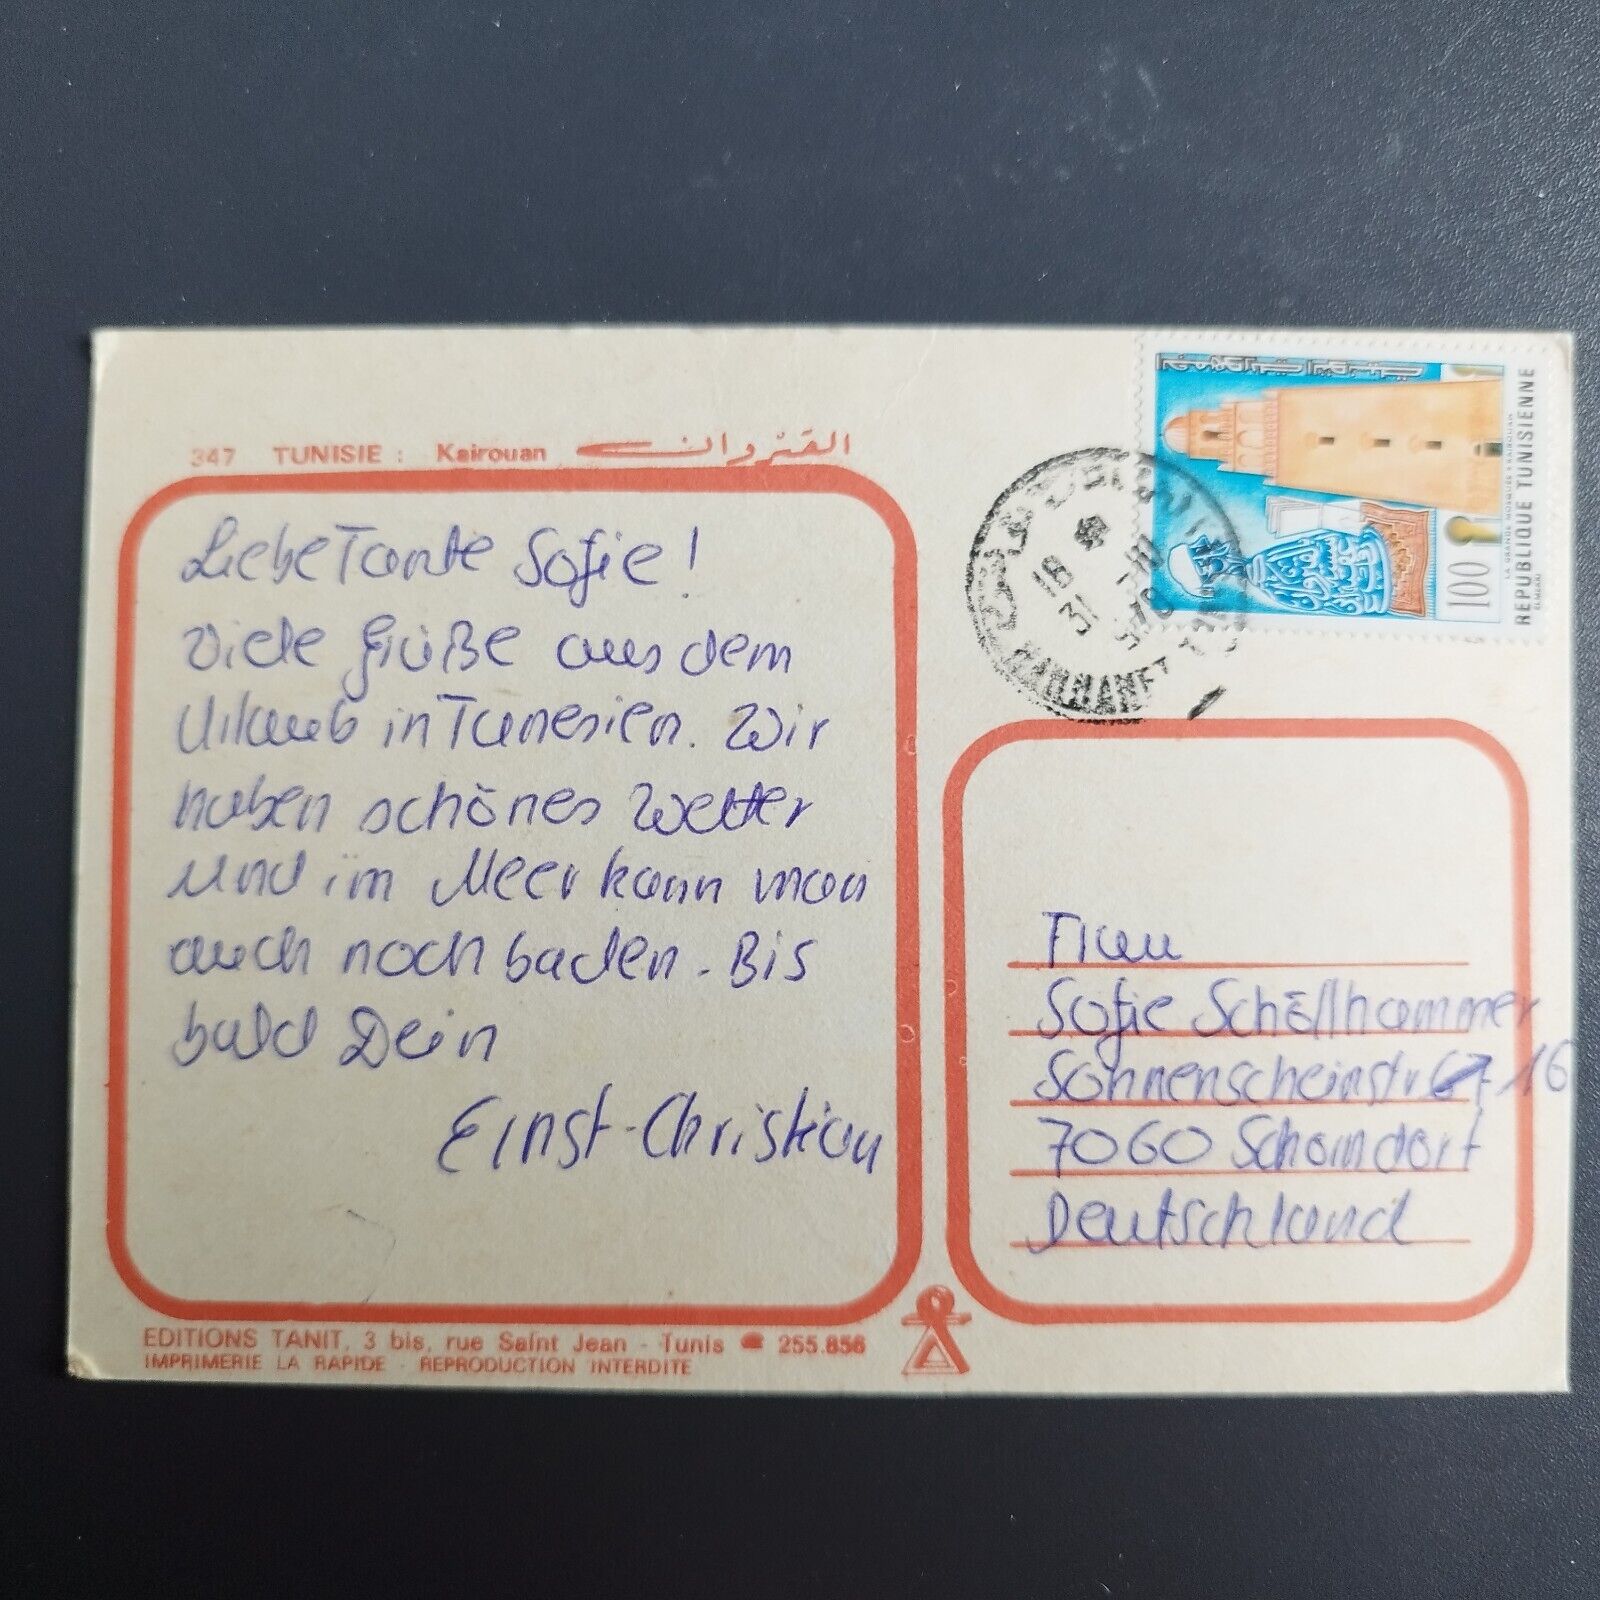 347 TUNISIE : Kairouan القيروان
Liebe Tante Sofie!
Viele Grüße aus dem
Urlaub in Tunesien. Wir
haben schönes Wetter
und im Meer kann man
auch noch baden. Bis
bald Dein
Ernst-Christian
EDITIONS TANIT, 3 bis, rue Saint Jean - Tunis ☎ 255.856
IMPRIMERIE LA RAPIDE - REPRODUCTION INTERDITE
REPUBLIQUE TUNISIENNE
LA GRANDE MOSQUEE KAIROUAN
100
18
31
HAMMAMET
Frau
Sofie Schöllhammer
Sonnenscheinstr 16
7060 Schorndorf
Deutschland